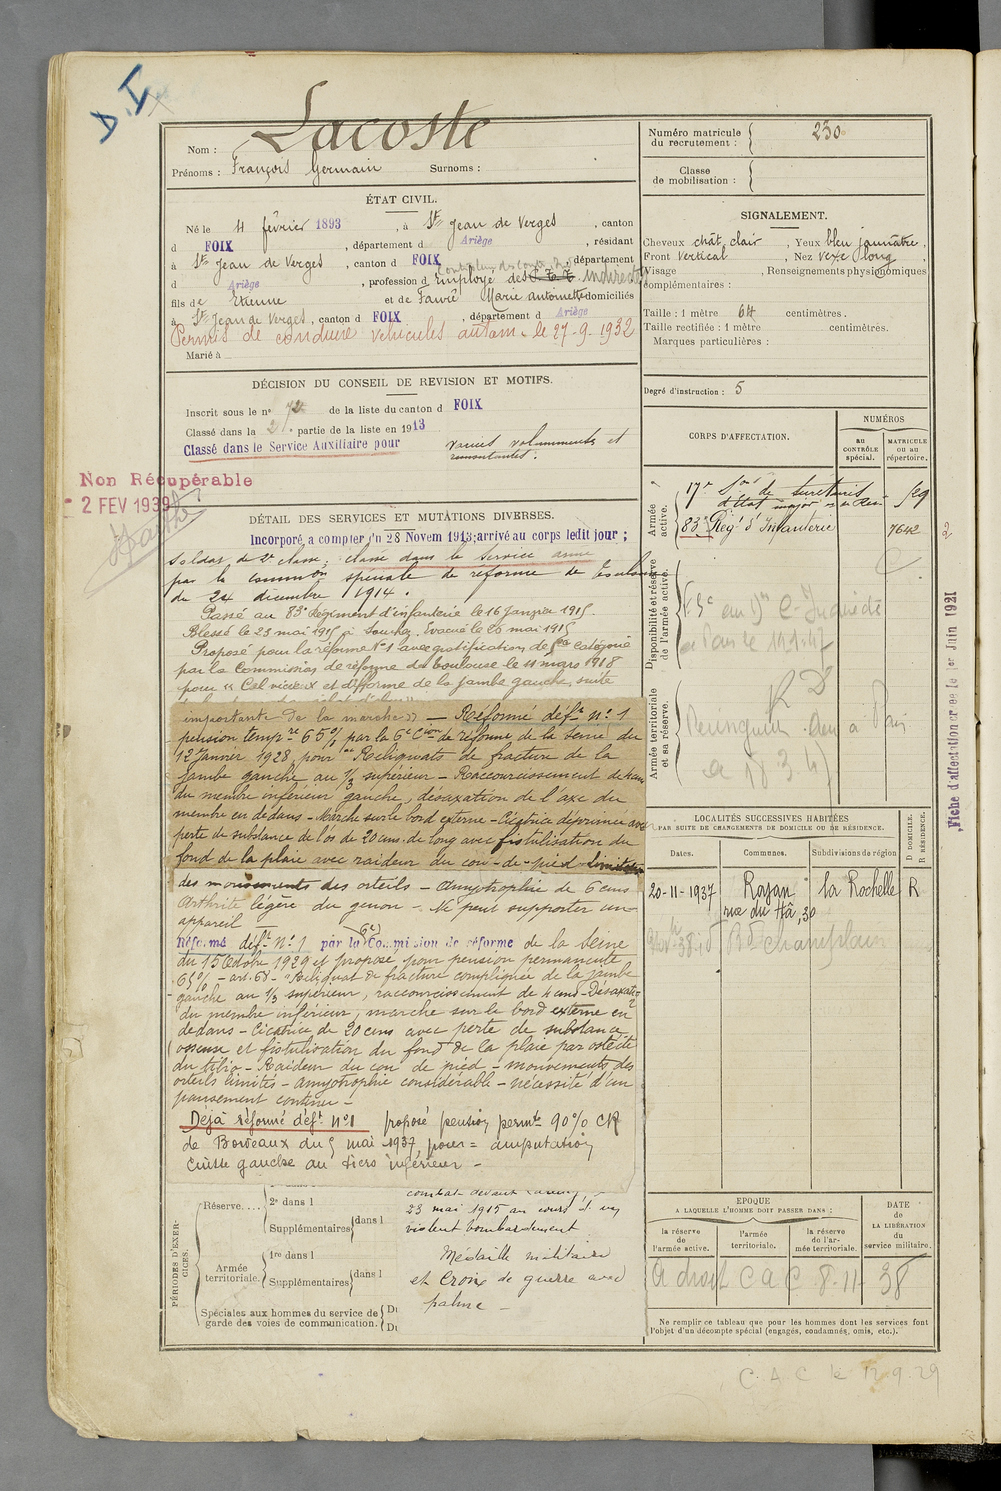 D. I
Lacoste
Nom :
Prénoms : François Germain Surnoms :
Numéro matricule du recrutement : 230
Classe de mobilisation :
ÉTAT CIVIL.
Né le 4 février 1893, à St Jean de Verges, canton
d FOIX, département d Ariège, résidant
à St Jean de Verges, canton d FOIX, département
d Ariège, profession d employé des indirectes
fils de Etienne et de Faure Marie antoinette domiciliés
à St Jean de Verges, canton d FOIX, département d Ariège
Permis de conduire vehicules autom. le 27-9-1932
Marié à
SIGNALEMENT.
Cheveux chât clair, Yeux bleu jaunâtre,
Front vertical, Nez vexe long,
Visage , Renseignements physionomiques
complémentaires :
Taille : 1 mètre 64 centimètres.
Taille rectifiée : 1 mètre centimètres.
Marques particulières :
Degré d'instruction : 5
DÉCISION DU CONSEIL DE REVISION ET MOTIFS.
Inscrit sous le n° 72 de la liste du canton d FOIX
Classé dans la 2e partie de la liste en 1913
Classé dans le Service Auxiliaire pour varices volumineuses et
Non Récupérable
- 2 FEV 1939
DÉTAIL DES SERVICES ET MUTATIONS DIVERSES.
Incorporé à compter du 28 Novem 1913; arrivé au corps ledit jour ;
Soldat de 2e classe, classé dans le Service armé
par la common spéciale de réforme de Toulouse
du 24 décembre 1914.
Passé au 83e Régiment d'infanterie le 16 Janvier 1915.
Blessé le 23 mai 1915 à Souchez. Evacué le 26 mai 1915
Proposé pour la réforme N°1 avec gratification de 5e catégorie
par la Commission de réforme de Toulouse le 11 mars 1918
pour « Cal vicieux et difforme de la jambe gauche, suite
importante de la marche » — Réformé défif n° 1
pension tempre 65% par la 6e Con de réforme de la Seine du
12 Janvier 1928, pour " Reliquats de fracture de la
jambe gauche au 1/3 supérieur - Raccourcissement de 4 cm
du membre inférieur gauche, désaxation de l'axe du
membre en dedans - Marche sur le bord externe - Cicatrice déprimée avec
perte de substance de l'os de 20 cms. de long avec fistulisation du
fond de la plaie avec raideur du cou-de-pied limitation
des mouvements des orteils - amyotrophie de 6 cms
Arthrite légère du genou - Ne peut supporter un
appareil
Réformé déft n° 1 par la (6e) Commission de réforme de la Seine
du 15 Octobre 1929 et proposé pour pension permanente
65% - art. 68 - " Reliquat de fracture compliquée de la jambe
gauche au 1/3 supérieur, raccourcissement de 4 cms - Désaxation
du membre inférieur, marche sur le bord externe en
dedans - Cicatrice de 20 cms avec perte de substance
osseuse et fistulisation du fond de la plaie par ostéite
du tibia - Raideur du cou de pied - mouvements des
orteils limités - amyotrophie considérable - nécessité d'un
pansement continu -
Déjà réformé déft. N°1 proposé pension permte 90% CR
de Bordeaux du 5 mai 1937 pour = amputation
cuisse gauche au tiers inférieur -
CORPS D'AFFECTATION.
NUMÉROS
au CONTRÔLE spécial.
MATRICULE ou au répertoire.
Armée active.
17e Son de Secrétaires 529
d'état major
83e Régt d'Infanterie 7642
Disponibilité et réserve de l'armée active.
Armée territoriale et sa réserve.
R D
Fiche d'affectation créée le 1er Juin 1921
LOCALITÉS SUCCESSIVES HABITÉES
PAR SUITE DE CHANGEMENTS DE DOMICILE OU DE RÉSIDENCE.
Dates. Communes. Subdivisions de région D DOMICILE. R RÉSIDENCE.
20-11-1937 Royan la Rochelle R
rue du Hâ, 30
Bd Champlain
PÉRIODES D'EXERCICES.
Réserve....
2e dans l
Supplémentaires dans l
Armée territoriale.
1re dans l
Supplémentaires dans l
Spéciales aux hommes du service de garde des voies de communication.
23 mai 1915 au cours d'un
violent bombardement
Médaille militaire
et Croix de guerre avec
palme -
EPOQUE
A LAQUELLE L'HOMME DOIT PASSER DANS :
la réserve de l'armée active.
l'armée territoriale.
la réserve de l'armée territoriale.
DATE de LA LIBÉRATION du service militaire.
a droit C a C 8-11-38
Ne remplir ce tableau que pour les hommes dont les services font
l'objet d'un décompte spécial (engagés, condamnés, omis, etc.).
C. A. C le 12.9.29